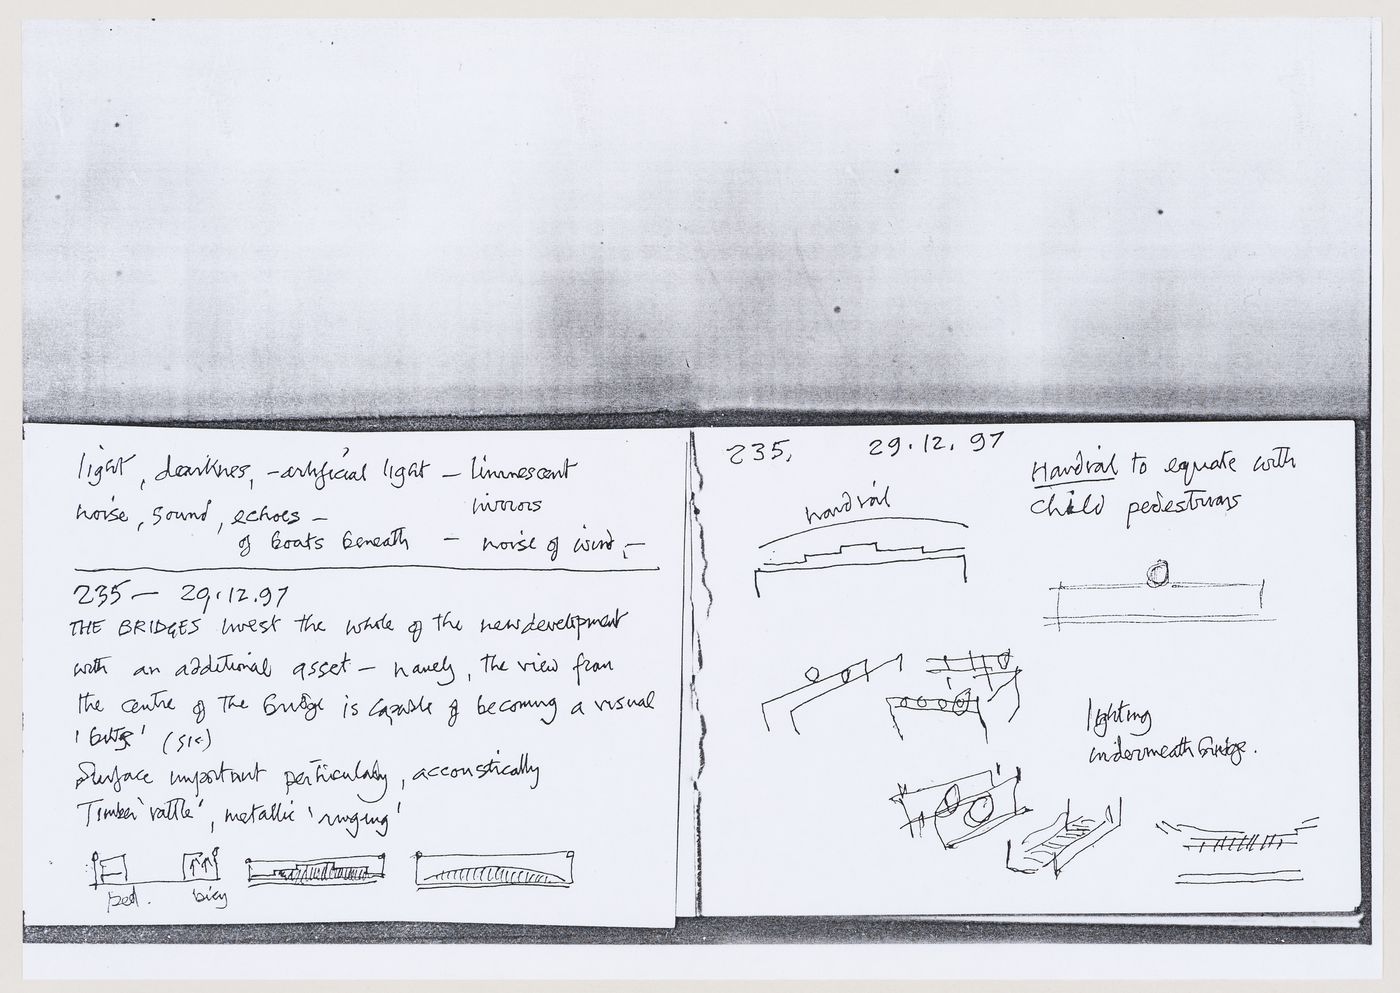 light, darknes, - artificial light - luminescent
mirrors
noise, sound, echoes -
of boats beneath - noise of wind, -
235 - 29.12.97
THE BRIDGES invest the whole of the new development
with an additional asset - namely, the view from
the centre of the bridge is capable of becoming a visual
' ' (sic)
Surface important perticularly, accoustically
Timber 'rattle', metallic 'ringing'
ped. bicy
235, 29.12.97
Handrail to equate with
child pedestrians
handrail
lighting
underneath bridge.